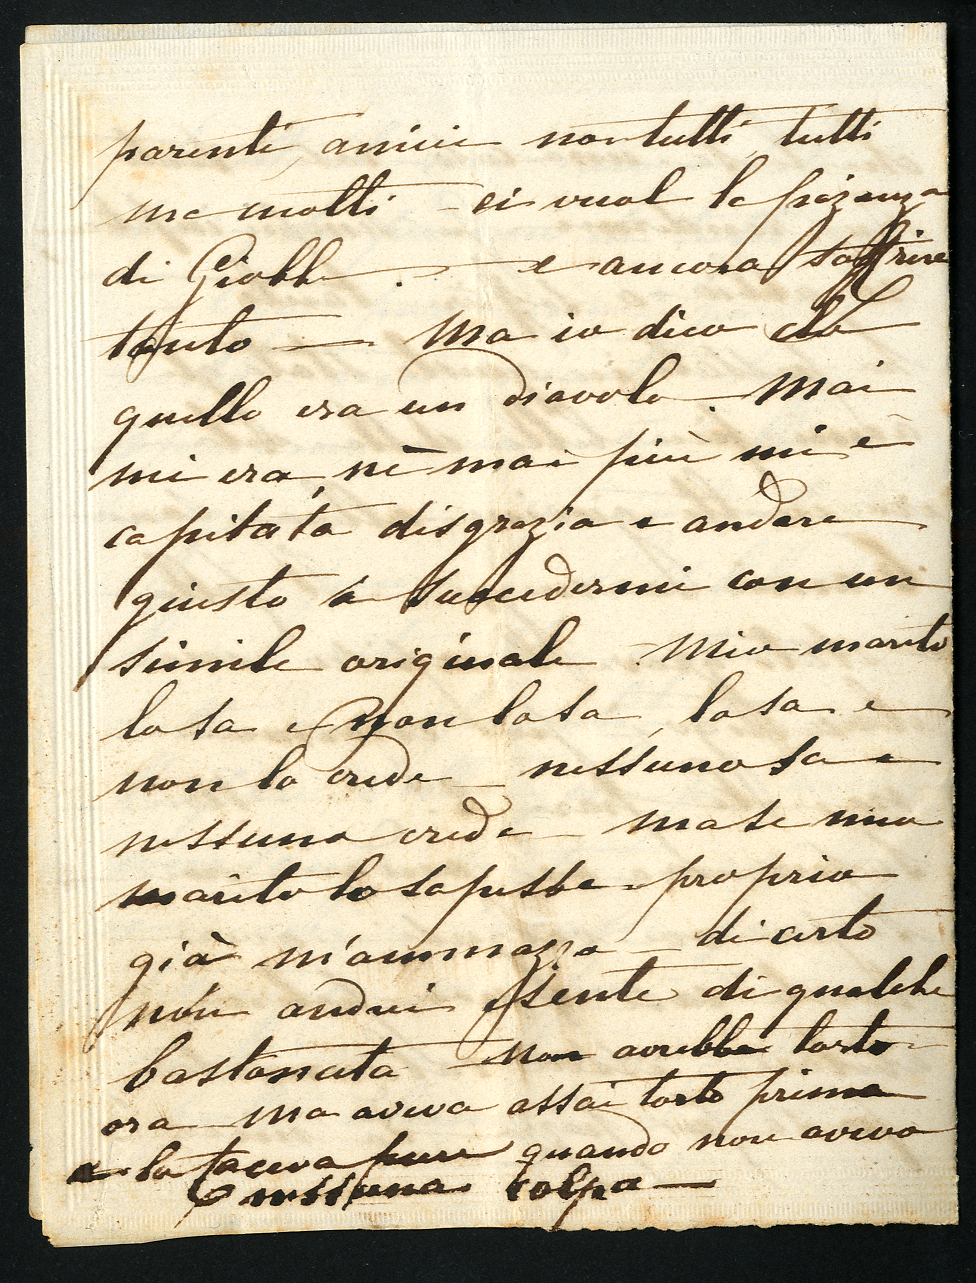 parenti, amici non tutti, tutti
ma molti – ci vuol la pazienza
di Giobbe . – e ancora soffrire
tanto – . Ma io dico che
quello era un diavolo. Mai
mi era, nè mai più mi è
capitata disgrazia e andare
giusto a succedermi con un
simile originale. Mio marito
lo sa e non lo sa, lo sa e
non lo crede – nessuno sa e
nessuno crede – ma se mio
marito lo sapesse proprio
già m'ammazza – di certo
non andrei esente di qualche
bastonata – Non avrebbe torto
ora ma aveva assai torto prima
e lo faceva pure quando non avevo
nessuna colpa –